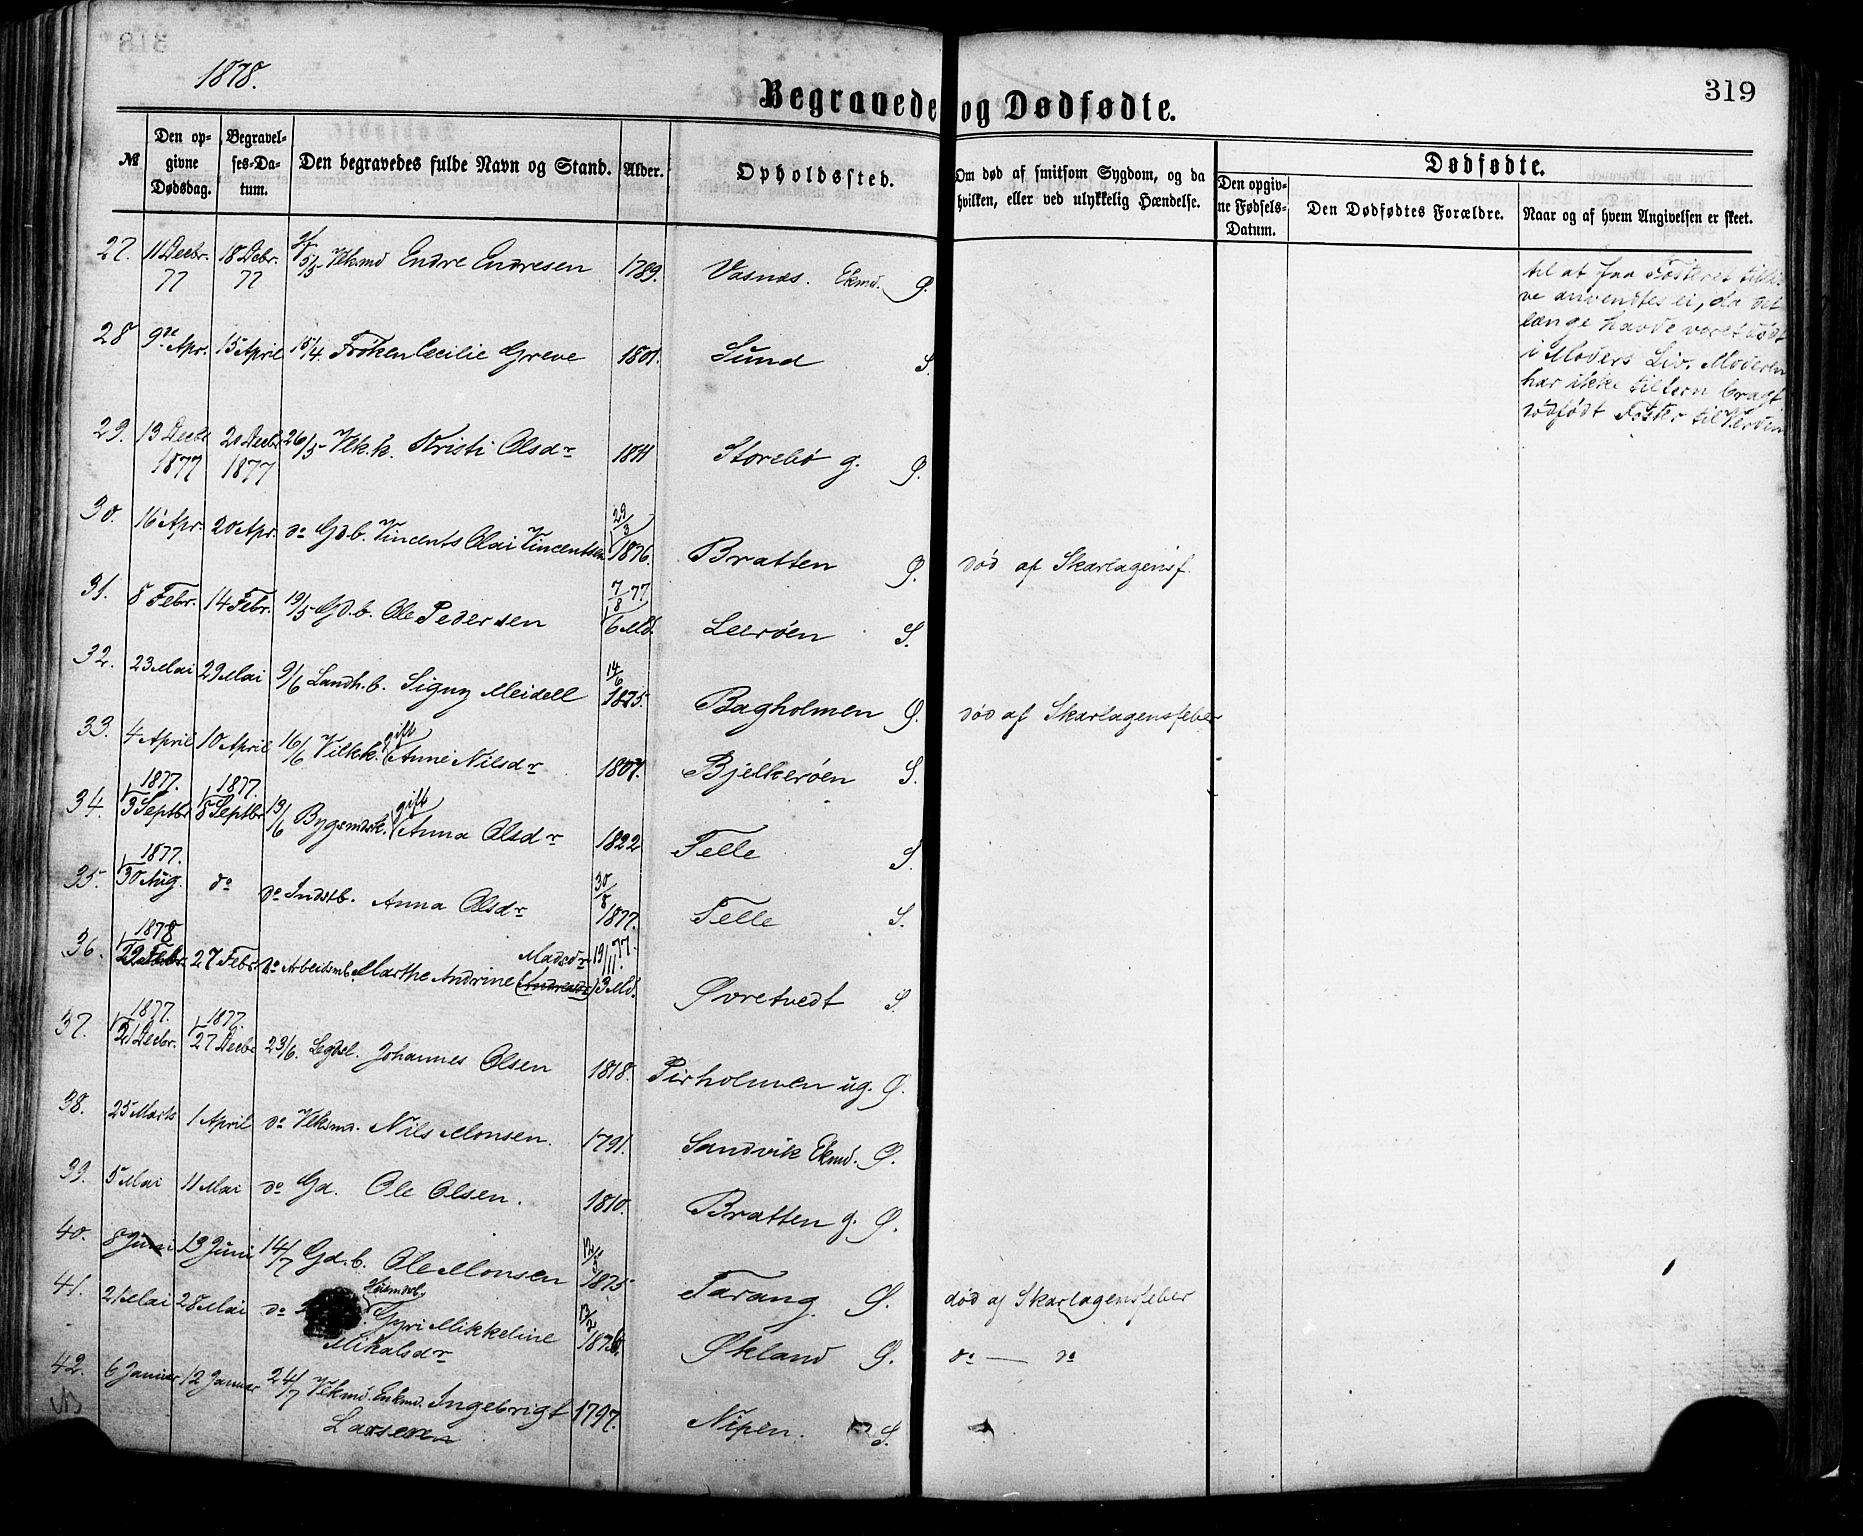 1878.
319
Begravede og Dødfødte.
№
Den opgivne Dødsdag.
Begravelses-Datum.
Den begravedes fulde Navn og Stand.
Alder.
Opholdssted.
Om død af smitsom Sygdom, og da hvilken, eller ved ulykkelig Hændelse.
Dødfødte.
Den opgivne Fødsels-Datum.
Den Dødfødtes Forældre.
Naar og af hvem Angivelsen er skeet.
27. 11 Decbr. 77 18 Debr. 77 5/5 Vkmd Endre Endresen 1789. Vasnæs. Ekmd. Ø.
28 9de Apr. 15 April 15/4. Frøken Cecilie Greve 1801. Sund S.
29. 13 Decbr 1877 20 Decbr 1877 26/5 Vek.k. Kristi Olsdr 1811 Storebø g. Ø.
30. 16 Apr. 20 Apr. do Gd.b. Vincents Olai Vincentsen 29/3 1876. Bratten Ø. død af Skarlagensf.
31. 8 Febr. 14 Febr. 19/5 Gd.b. Ole Pedersen 7/8 77 6 Md. Leerøen S.
32. 23 Mai 29 Mai 9/6 Landh.b. Signy Meidell 14/6 1875. Bagholmen Ø. død af Skarlagensfeber
33. 4 April 10 April 16/6 Vilkk. gift Anne Nilsdr 1807. Bjelkerøen S.
34. 1877. 3 Septbr 1877. 8 Septbr 19/6 Bygsmdsk. gift Anna Olsdr 1822 Telle S.
35. 1877. 30 Aug. do do Indstb. Anna Olsdr 30/8 1877. Telle S.
36. 1878 22 Febr. 27 Febr. do Arbeidsmb. Marthe Andrine Madsdr 19/11 77. 3 Md. Øvretvedt S.
37. 1877. 21 Decbr. 1877. 27 Decbr 23/6. Legdsl. Johannes Olsen 1818. Pirholmen ug. Ø.
38. 25 Marts 1 April do Vkmd. Nils Monsen. 1791. Sandvik Ekmd. Ø.
39. 5 Mai 11 Mai do Gd. Ole Olsen. 1810. Bratten g. Ø.
40. 8 Juni 13 Juni 14/7 Gd.b. Ole Monsen 1875 Tarang Ø. død af Skarlagensfeber
41. 21 Mai 28 Mai do Husmdsb. Gyri Mikkeline Mikalsdr 1876. Økland Ø. do — do
42. 6 Januar 12 Januar 24/7 Vekmd. Enkmd. Ingebrigt Larsen 1797. Nipen. S.
til at faa Fosteret tilli-
ve anvendtes ei, da det
længe havde været dødt
i Moders Liv. Moderen
har ikke tilforn bragt
dødfødt Foster til Verden